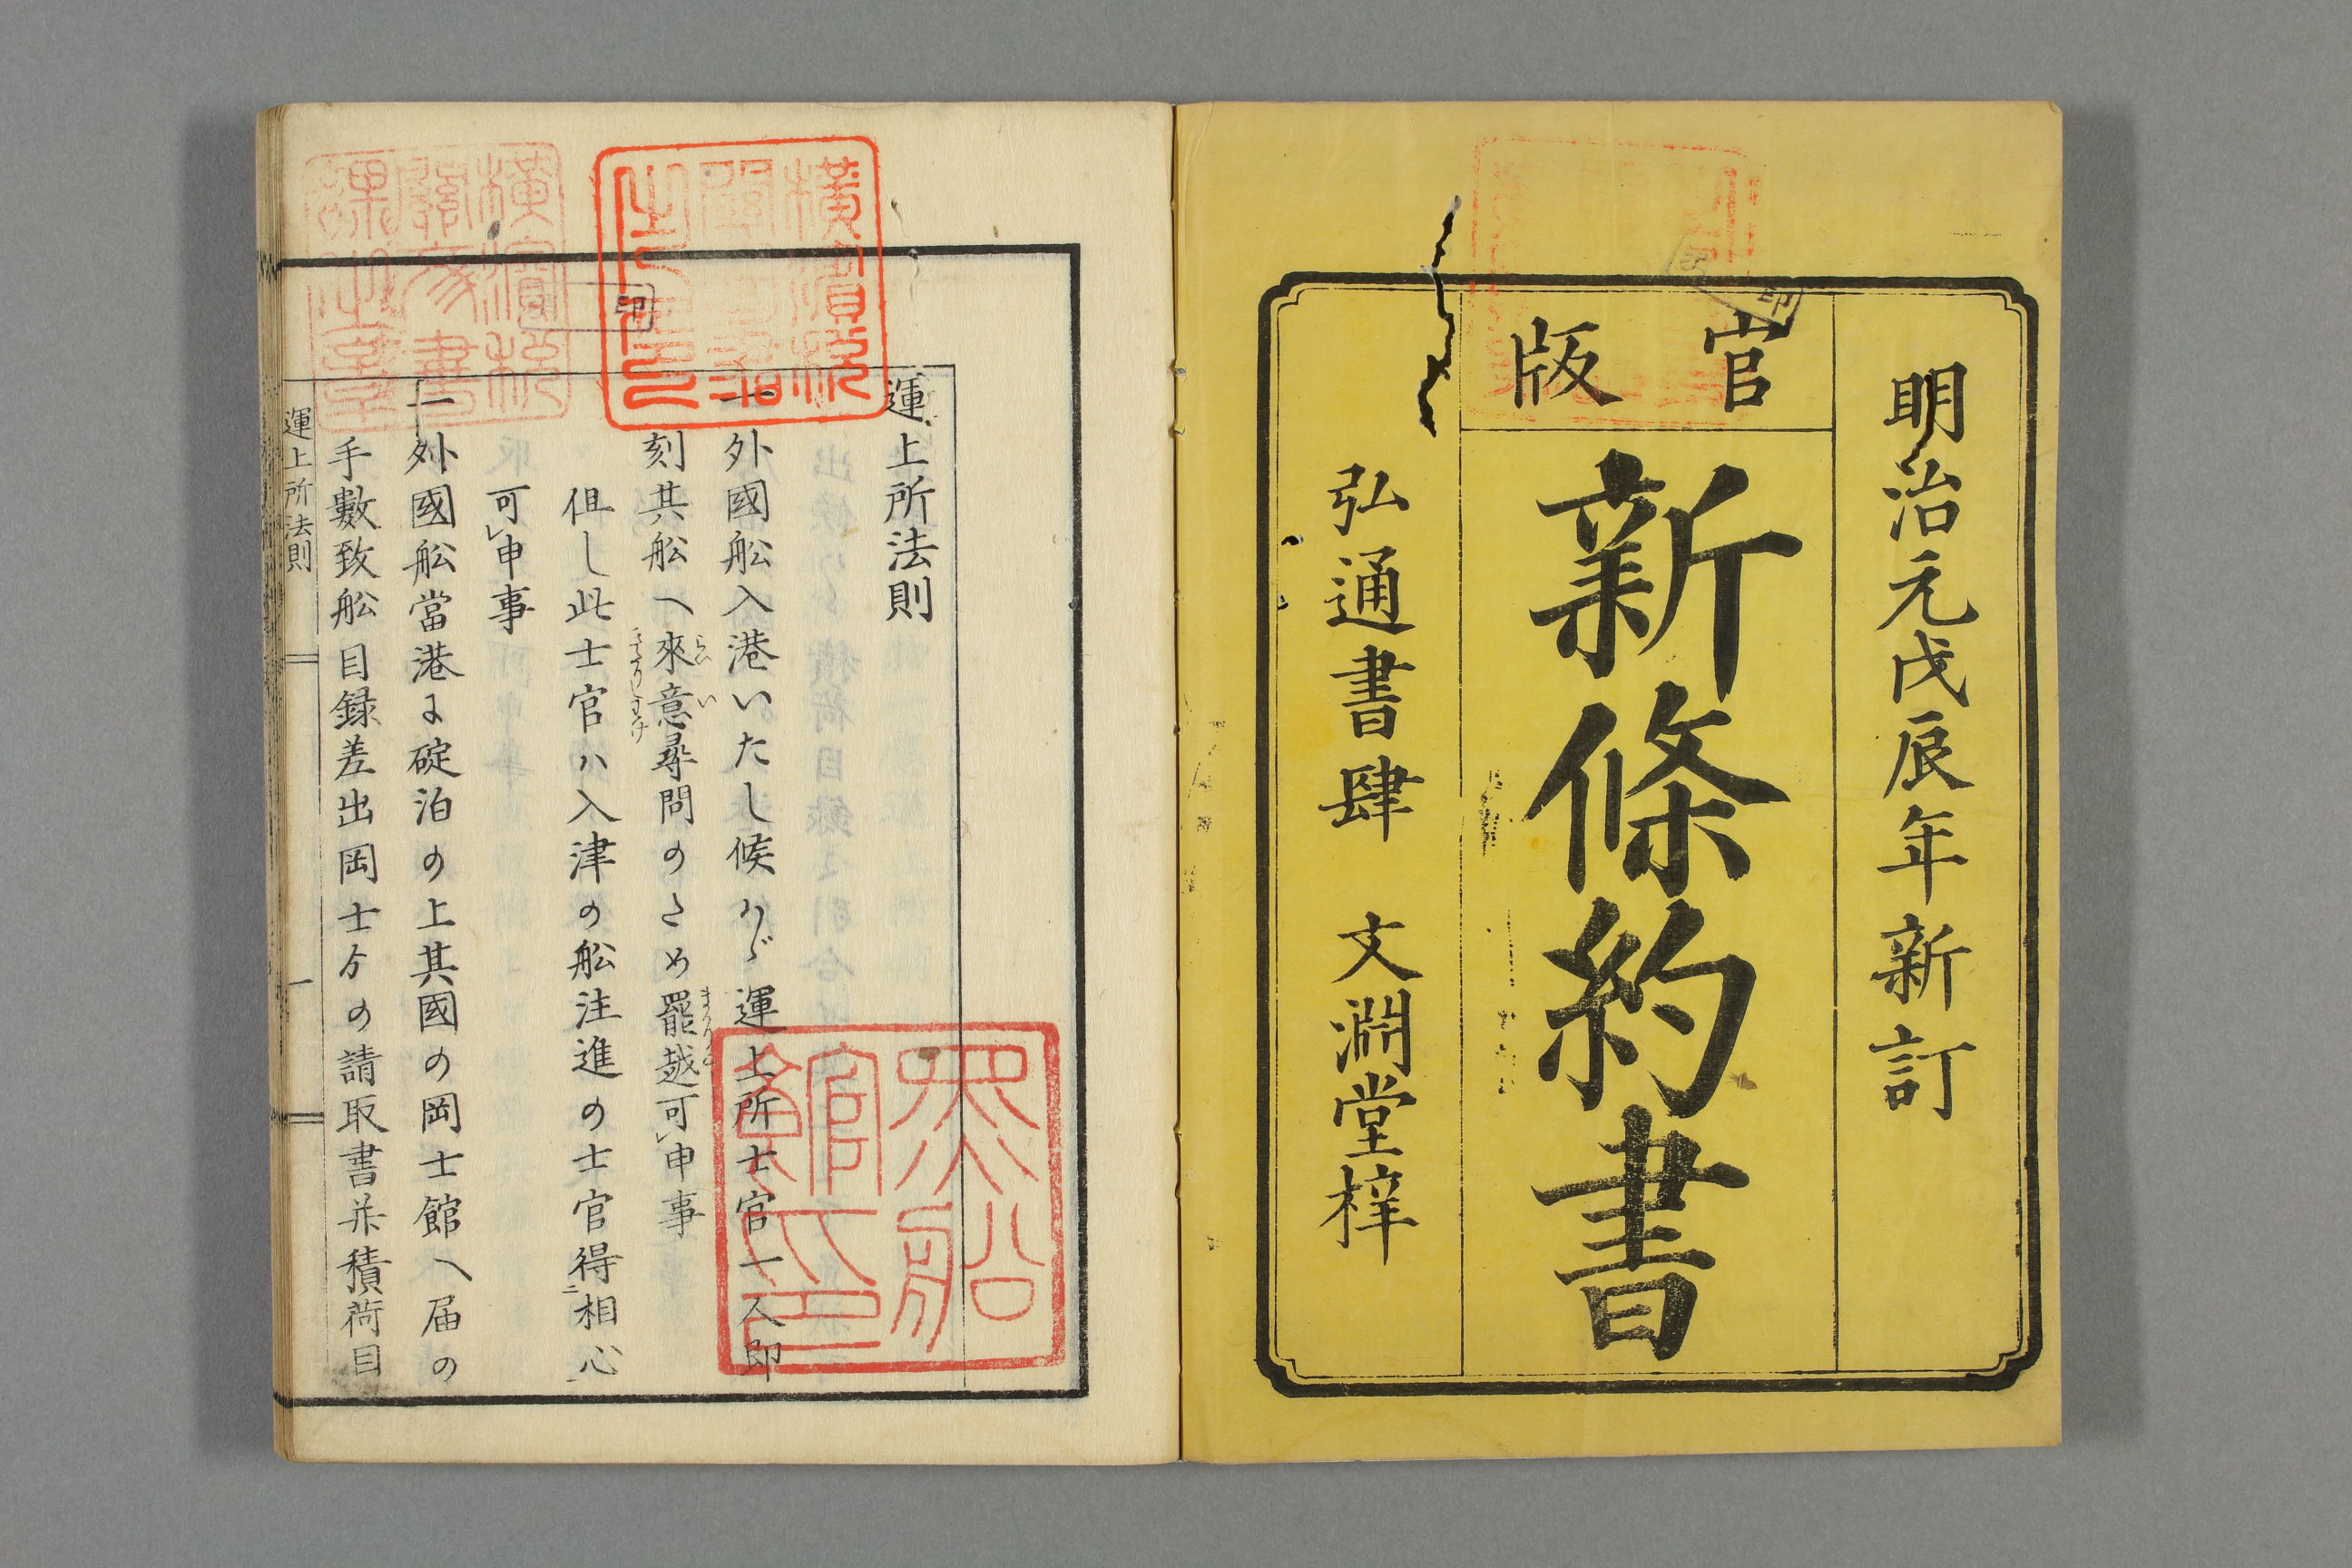 明治元戊辰年新訂
官版
新條約書
弘通書肆 文淵堂梓
運上所法則
一外國舩入港いたし候ハヾ運上所士官一人即
刻其舩へ來意尋問のため罷越可レ申事
但し此士官ハ入津の舩注進の士官得二相心一
可レ申事
一外國舩當港に碇泊の上其國の岡士館へ届の
手數致舩目録差出岡士ゟの請取書并積荷目
運上所法則
一